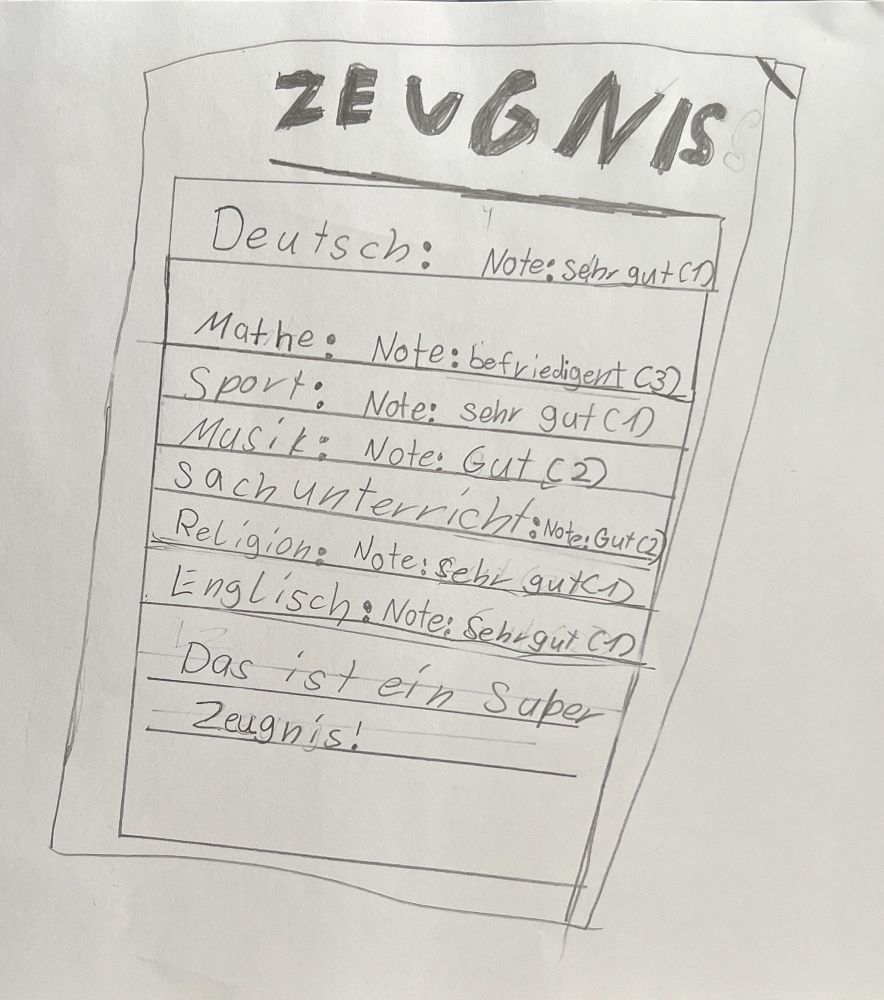 ZEUGNIS
Deutsch: Note: sehr gut (1)
Mathe: Note: befriedigent (3)
Sport: Note: sehr gut (1)
Musik: Note: Gut (2)
Sachunterricht: Note: Gut (2)
Religion: Note: sehr gut (1)
Englisch: Note: Sehr gut (1)
Das ist ein Super
Zeugnis!